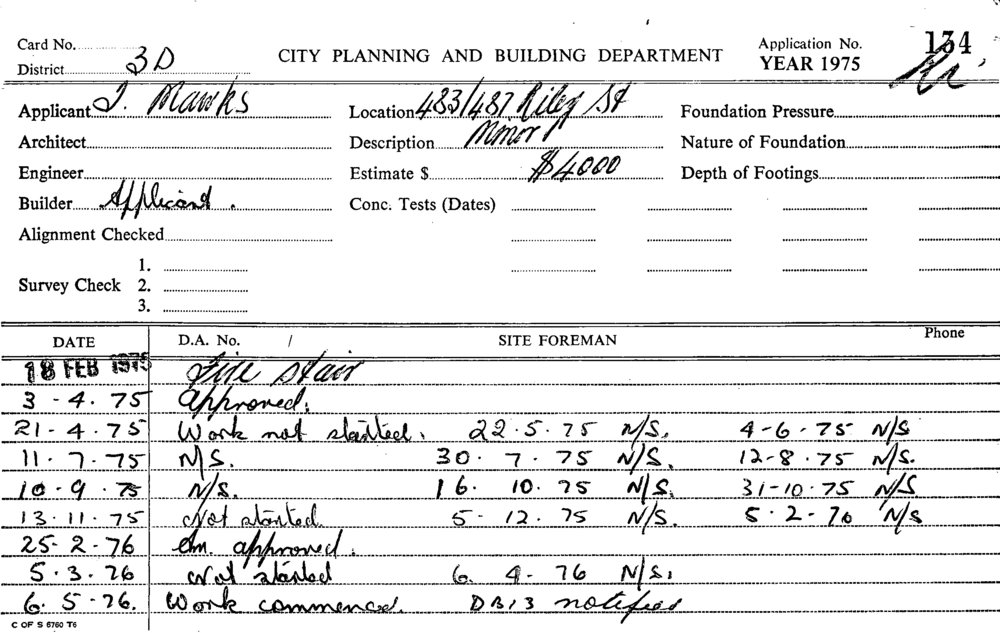 Card No. CITY PLANNING AND BUILDING DEPARTMENT Application No. 134
District 3D YEAR 1975
Applicant J. Mawks Location 483/487 Riley St Foundation Pressure
Architect Description Minor Nature of Foundation
Engineer Estimate $ $4000 Depth of Footings
Builder Applicant. Conc. Tests (Dates)
Alignment Checked
1.
Survey Check 2.
3.
DATE D.A. No. / SITE FOREMAN Phone
18 FEB 1975 Fire stair
3 - 4. 75 Approved.
21 - 4. 75 Work not started. 22.5.75 N/S. 4-6-75 N/S
11. 7. 75 N/S. 30. 7. 75 N/S. 12-8.75 N/S.
10 - 9. 75 N/S. 16. 10. 75 N/S. 31-10.75 N/S
13.11.75 Not started 5- 12. 75 N/S. 5-2-76 N/S
25- 2-76 Am. approved.
5. 3. 76 Not started 6. 4- 76 N/S.
6. 5-76. Work commenced. DB13 notified
C OF S 6760 T6